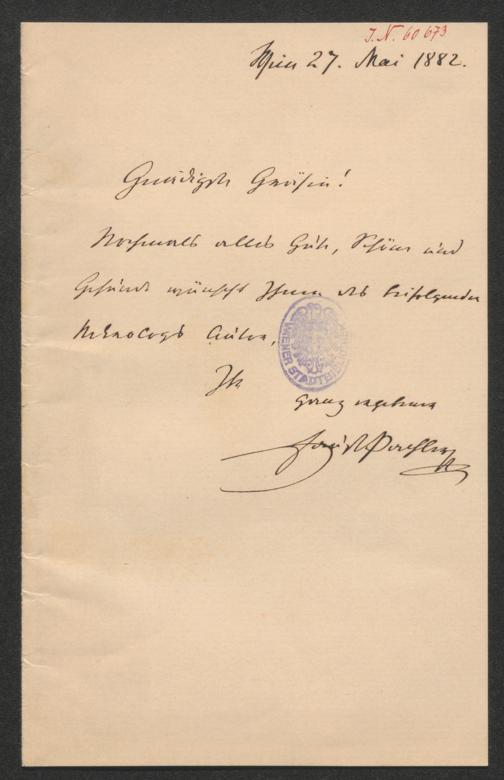 J.N. 60673
Wien 27. Mai 1882.
Gnädigste Gräfin!
Nochmals alles Gute, Schöne und
Gesunde wünscht Ihnen des beifolgenden
Nekrologs Autor,
Ihr
ganz ergebener
Faust Pachler
WIENER STADTBIBLIOTHEK